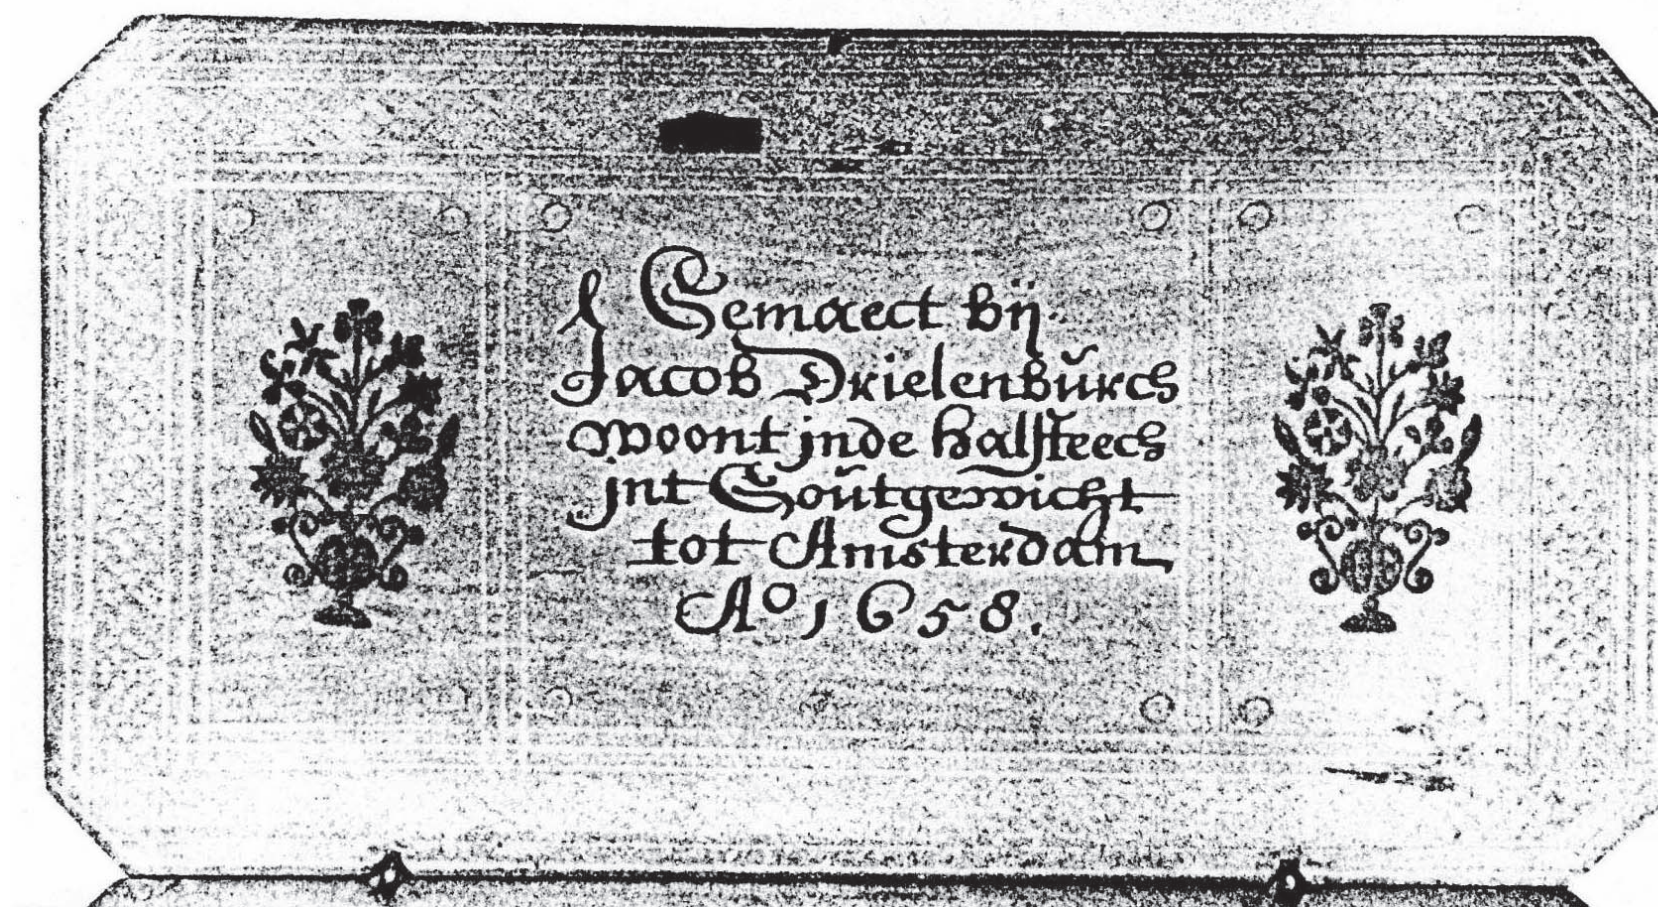 Gemaect bij
Jacob Drielenburch
woont jnde halsteech
jnt Goutgewicht
tot Amsterdam
Ao 1658.